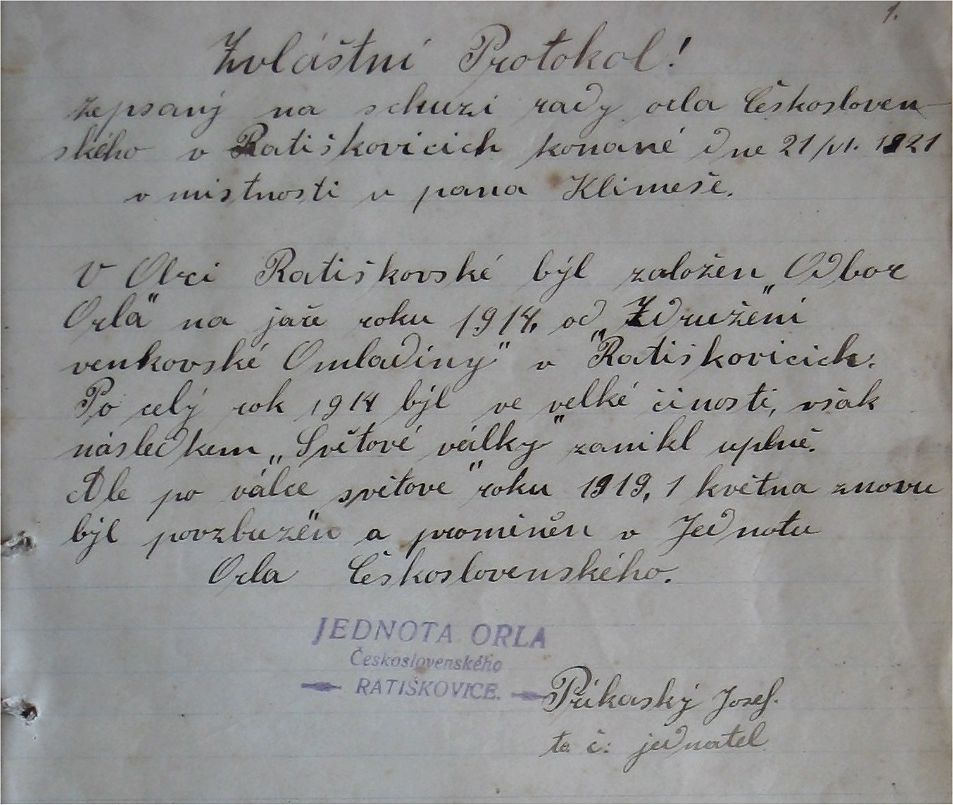 1.
Zvláštní Protokol!
zepsaný na schuzi rady orla Českosloven-
ského v Ratiškovicích konané dne 21/VI. 1921
v mistnosti u pana Klimeše.
V Obci Ratiškovské býl založen „Odbor
Orla" na jaře roku 1914, od „Združení
venkovské Omladiny" v Ratiškovicich.
Po celý rok 1914 býl ve velké činosti, však
následkem „Světové války" zanikl uplně.
Ale po válce světove" roku 1919, 1 května znovu
býl povzbuzěn a proměněn v Jednotu
Orla Československého.
JEDNOTA ORLA
Československého
RATIŠKOVICE.
Příkaský Josef.
t. č. jednatel